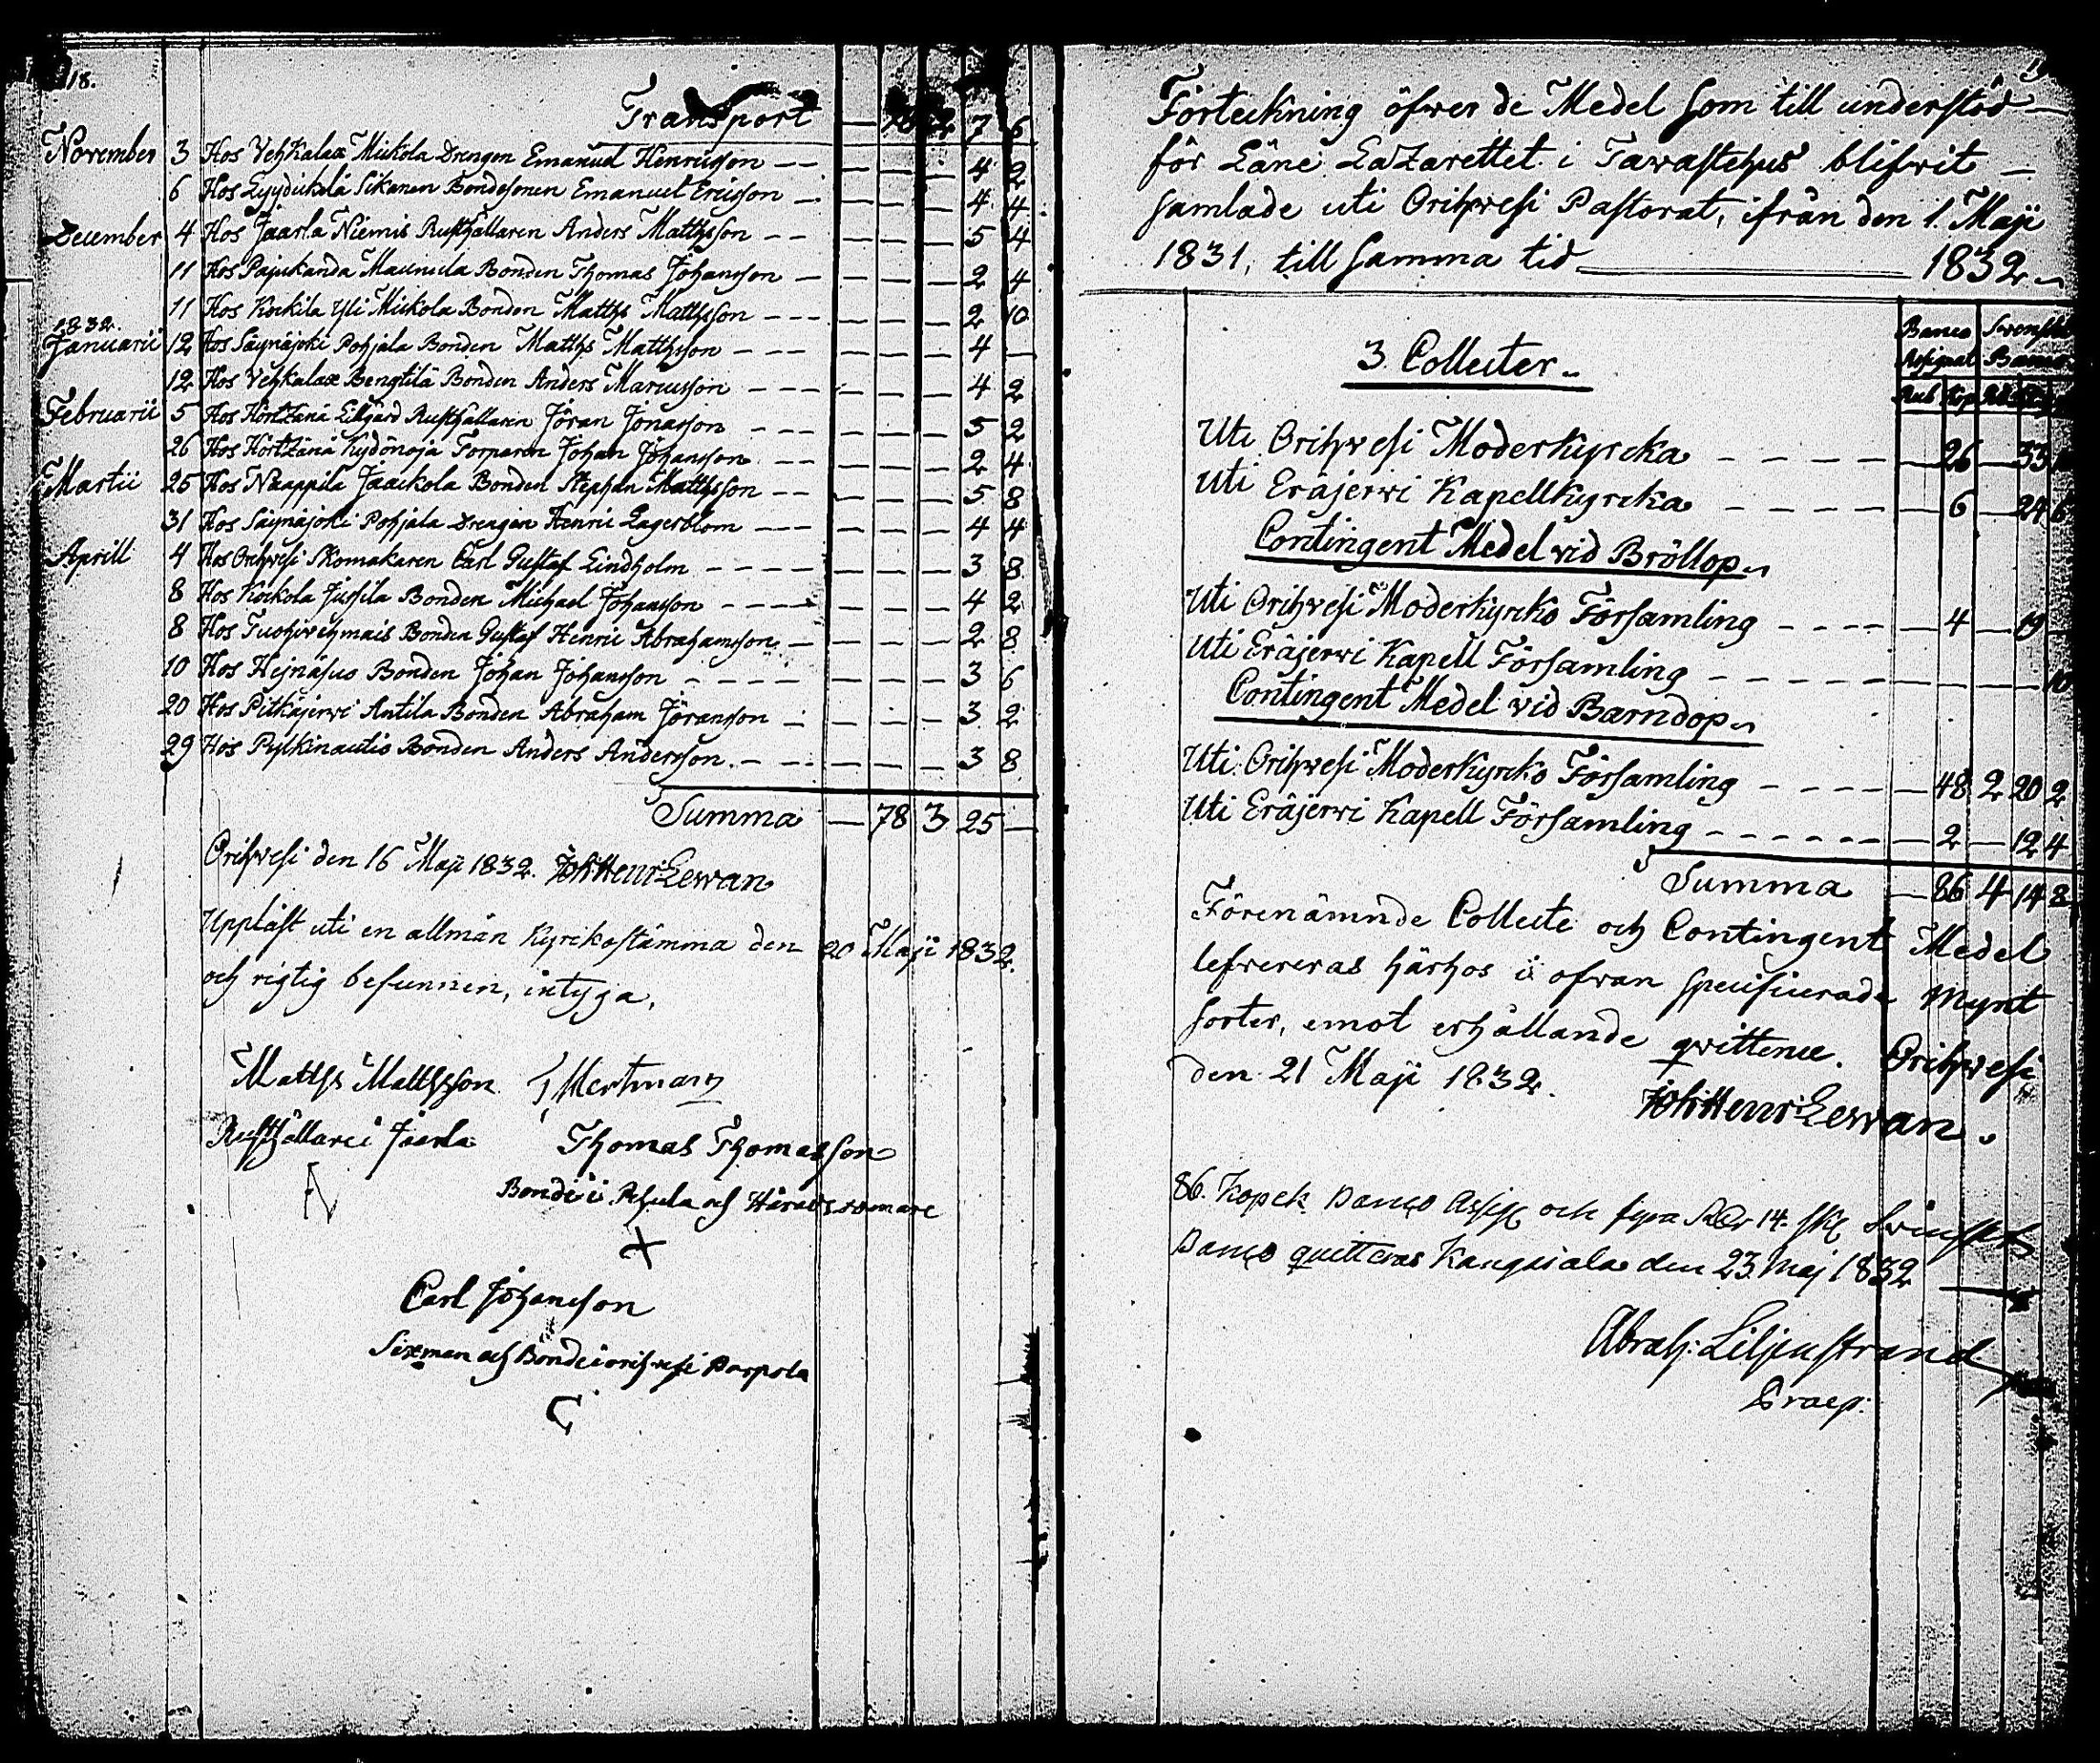 18.
Transport — 78 2 7 6
November 3 Hos Vehkalax Mickola Drengen Emanuel Henricsson — — — — — 4 2
6 Hos Lyydickälä Sikanen Bondesonen Emanuel Ericsson — — — — 4 4
December 4 Hos Jaarla Niemis Rusthållaren Anders Mattsson — — — — — 5 4
11 Hos Pajukanda Maunula Bonden Thomas Johansson — — — — 2 4
11 Hos Kockila Yli Mickola Bonden Matths Mattsson — — — — — — 2 10
1832.
Januarii 12 Hos Säynäjoki Pohjala Bonden Matths Mattsson — — — — — — 4 —
12 Hos Vehkalax Bengtilä Bonden Anders Marcusson — — — — — 4 2
Februarii 5 Hos Hörtzänä Lillgård Rusthållaren Jöran Jonasson — — — — — — 5 2
26 Hos Hörtzänä Kydönoja Torparen Johan Johansson — — — — — 2 4
Martii 25 Hos Naappila Jaackola Bonden Stephan Mattsson — — — — — 5 8
31 Hos Säynäjoki Pohjala Drengen Henric Lagerblom — — — — — — 4 4
Aprill 4 Hos Orihvesi Skomakaren Carl Gustaf Lindholm — — — — — — — 3 8
8 Hos Kockola Jussila Bonden Michael Johansson — — — — — — — 4 2
8 Hos Tuohivehmais Bonden Gustaf Henric Abrahamsson — — — — 2 8
10 Hos Hejnäsuo Bonden Johan Johansson — — — — — — — 3 6
20 Hos Pitkäjerwi Antila Bonden Abraham Jöransson — — — — 3 2
29 Hos Pylkinautio Bonden Anders Andersson. — — — — — 3 8
Summa — 78 3 25 —
Orihvesi den 16 Maji 1832. Joh: Henr: Lewan
Uppläst uti en allmän Kyrckostämma den 20 Maji 1832.
och rigtig befunnen, intyga,
Matths Mattsson J Mertman
Rusthållare i Jaarla Thomas Thomasson
N Bonde i Pehula och Häradsdomare
+
Carl Johansson
Sexman och Bonde i Orihvesi Parpola
C
Förteckning öfwer de Medel som till understöd
för Läne Lazarettet i Tawastehus blifwit
samlade uti Orihwesi Pastorat, ifrån den 1. Maji
1831, till samma tid 1832.
Banco Assignat. Swenskt Banco
3 Collecter.
Rub Kop
Uti Orihwesi Moderkyrcka — — — — — 26 — 33
Uti Eräjerwi Kapellkyrcka — — — — — 6 — 24 6
Contingent Medel vid Bröllop.
Uti Orihwesi Moderkyrcko Församling — — — — — 4 — 19 —
Uti Eräjerwi Kapell Församling — — — — — — — — 10
Contingent Medel vid Barndop.
Uti Orihwesi Moderkyrcko Församling — — — — — 48 2 20 2
Uti Eräjerwi Kapell Församling — — — — — — — 2 — 12 4
Summa — 86 4 14 8
Förenämnde Collecte och Contingent Medel
lefwereras härhos i ofwan specificerade Mynt
sorter, emot erhållande qvittence. Orihwesi
den 21 Maji 1832. Joh: Henr: Lewan.
86. Kopek Banco Assign och fyra Rdr 14. sk Svenskt
Banco quitteras Kangasala den 23 Maj 1832
Abrah: Liljenstrand
Praep: